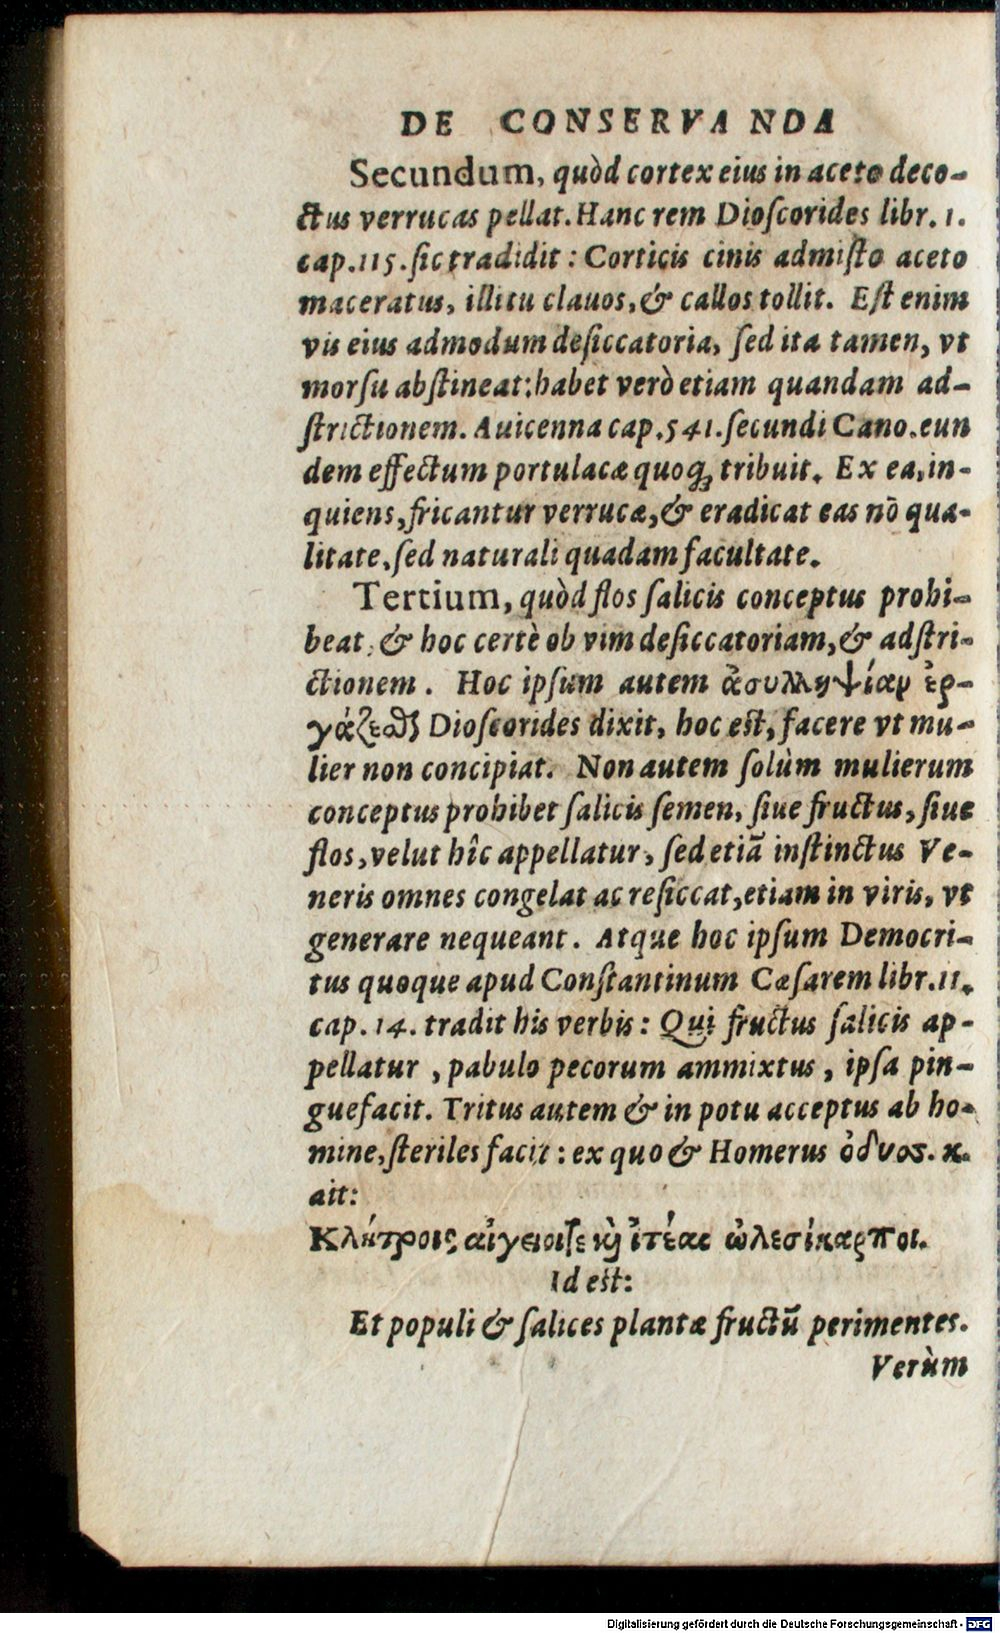 DE CONSERVANDA
Secundum, quòd cortex eius in aceto deco-
ctus verrucas pellat. Hanc rem Dioſcorides libr. 1.
cap. 115. ſic tradidit: Corticis cinis admiſto aceto
maceratus, illitu clauos, & callos tollit. Eſt enim
vis eius admodum deſiccatoria, ſed ita tamen, vt
morſu abſtineat: habet verò etiam quandam ad-
ſtrictionem. Auicenna cap. 541. ſecundi Cano. eun
dem effectum portulacæ quoq; tribuit. Ex ea, in-
quiens, fricantur verrucæ, & eradicat eas nō qua-
litate, ſed naturali quadam facultate.
Tertium, quòd flos ſalicis conceptus prohi-
beat, & hoc certè ob vim deſiccatoriam, & adſtri-
ctionem. Hoc ipſum autem ἀσυλληψίαν ἐρ-
γάζεσθαι Dioſcorides dixit, hoc eſt, facere vt mu-
lier non concipiat. Non autem ſolùm mulierum
conceptus prohibet ſalicis ſemen, ſiue fructus, ſiue
flos, velut hîc appellatur, ſed etiā inſtinctus Ve-
neris omnes congelat ac reſiccat, etiam in viris, vt
generare nequeant. Atque hoc ipſum Democri-
tus quoque apud Conſtantinum Cæſarem libr. 11.
cap. 14. tradit his verbis: Qui fructus ſalicis ap-
pellatur, pabulo pecorum ammixtus, ipſa pin-
guefacit. Tritus autem & in potu acceptus ab ho-
mine, ſteriles facit: ex quo & Homerus ὀδυος. κ.
ait:
Κλήτροις αἰγειοιζε καὶ ἰτέας ὠλεσίκαρποι.
Id eſt:
Et populi & ſalices plantæ fructū perimentes.
Verùm
Digitalisierung gefördert durch die Deutsche Forschungsgemeinschaft - DFG